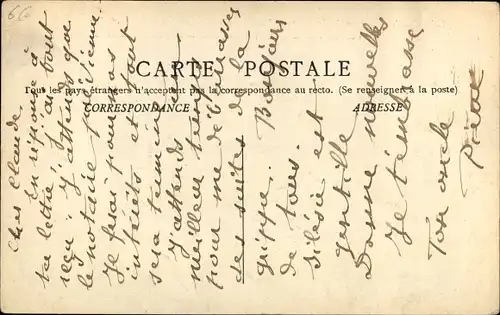 66
CARTE POSTALE
Tous les pays étrangers n'acceptent pas la correspondance au recto. (Se renseigner à la poste)
CORRESPONDANCE
ADRESSE
Cher Claude,
En réponse à
ta lettre, j'ai tout
reçu. J'attend que
le notaire me vienne.
Je ferai pour vos
intérêts et tout
sera terminé
J'attends un
meilleur temps
pour me
des suites de la
grippe. Bonjours
de tous.
Silésie est
gentille
Donne nouvelles
Je t'embrasse
Ton oncle
Pierre